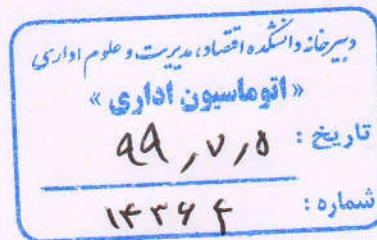 دبیرخانه دانشکده اقتصاد، مدیریت و علوم اداری
«اتوماسیون اداری»
تاریخ : ۹۹٫۷٫۵
شماره : ۱۴۳۶۴